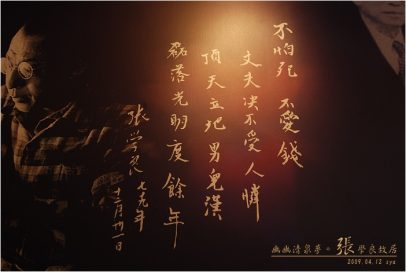 不怕死 不愛錢
丈夫決不受人憐
頂天立地男兒漢
磊落光明度餘年
張學良
七九年
十二月卅一日
幽幽清泉夢。張學良故居
2009.04.12 sya